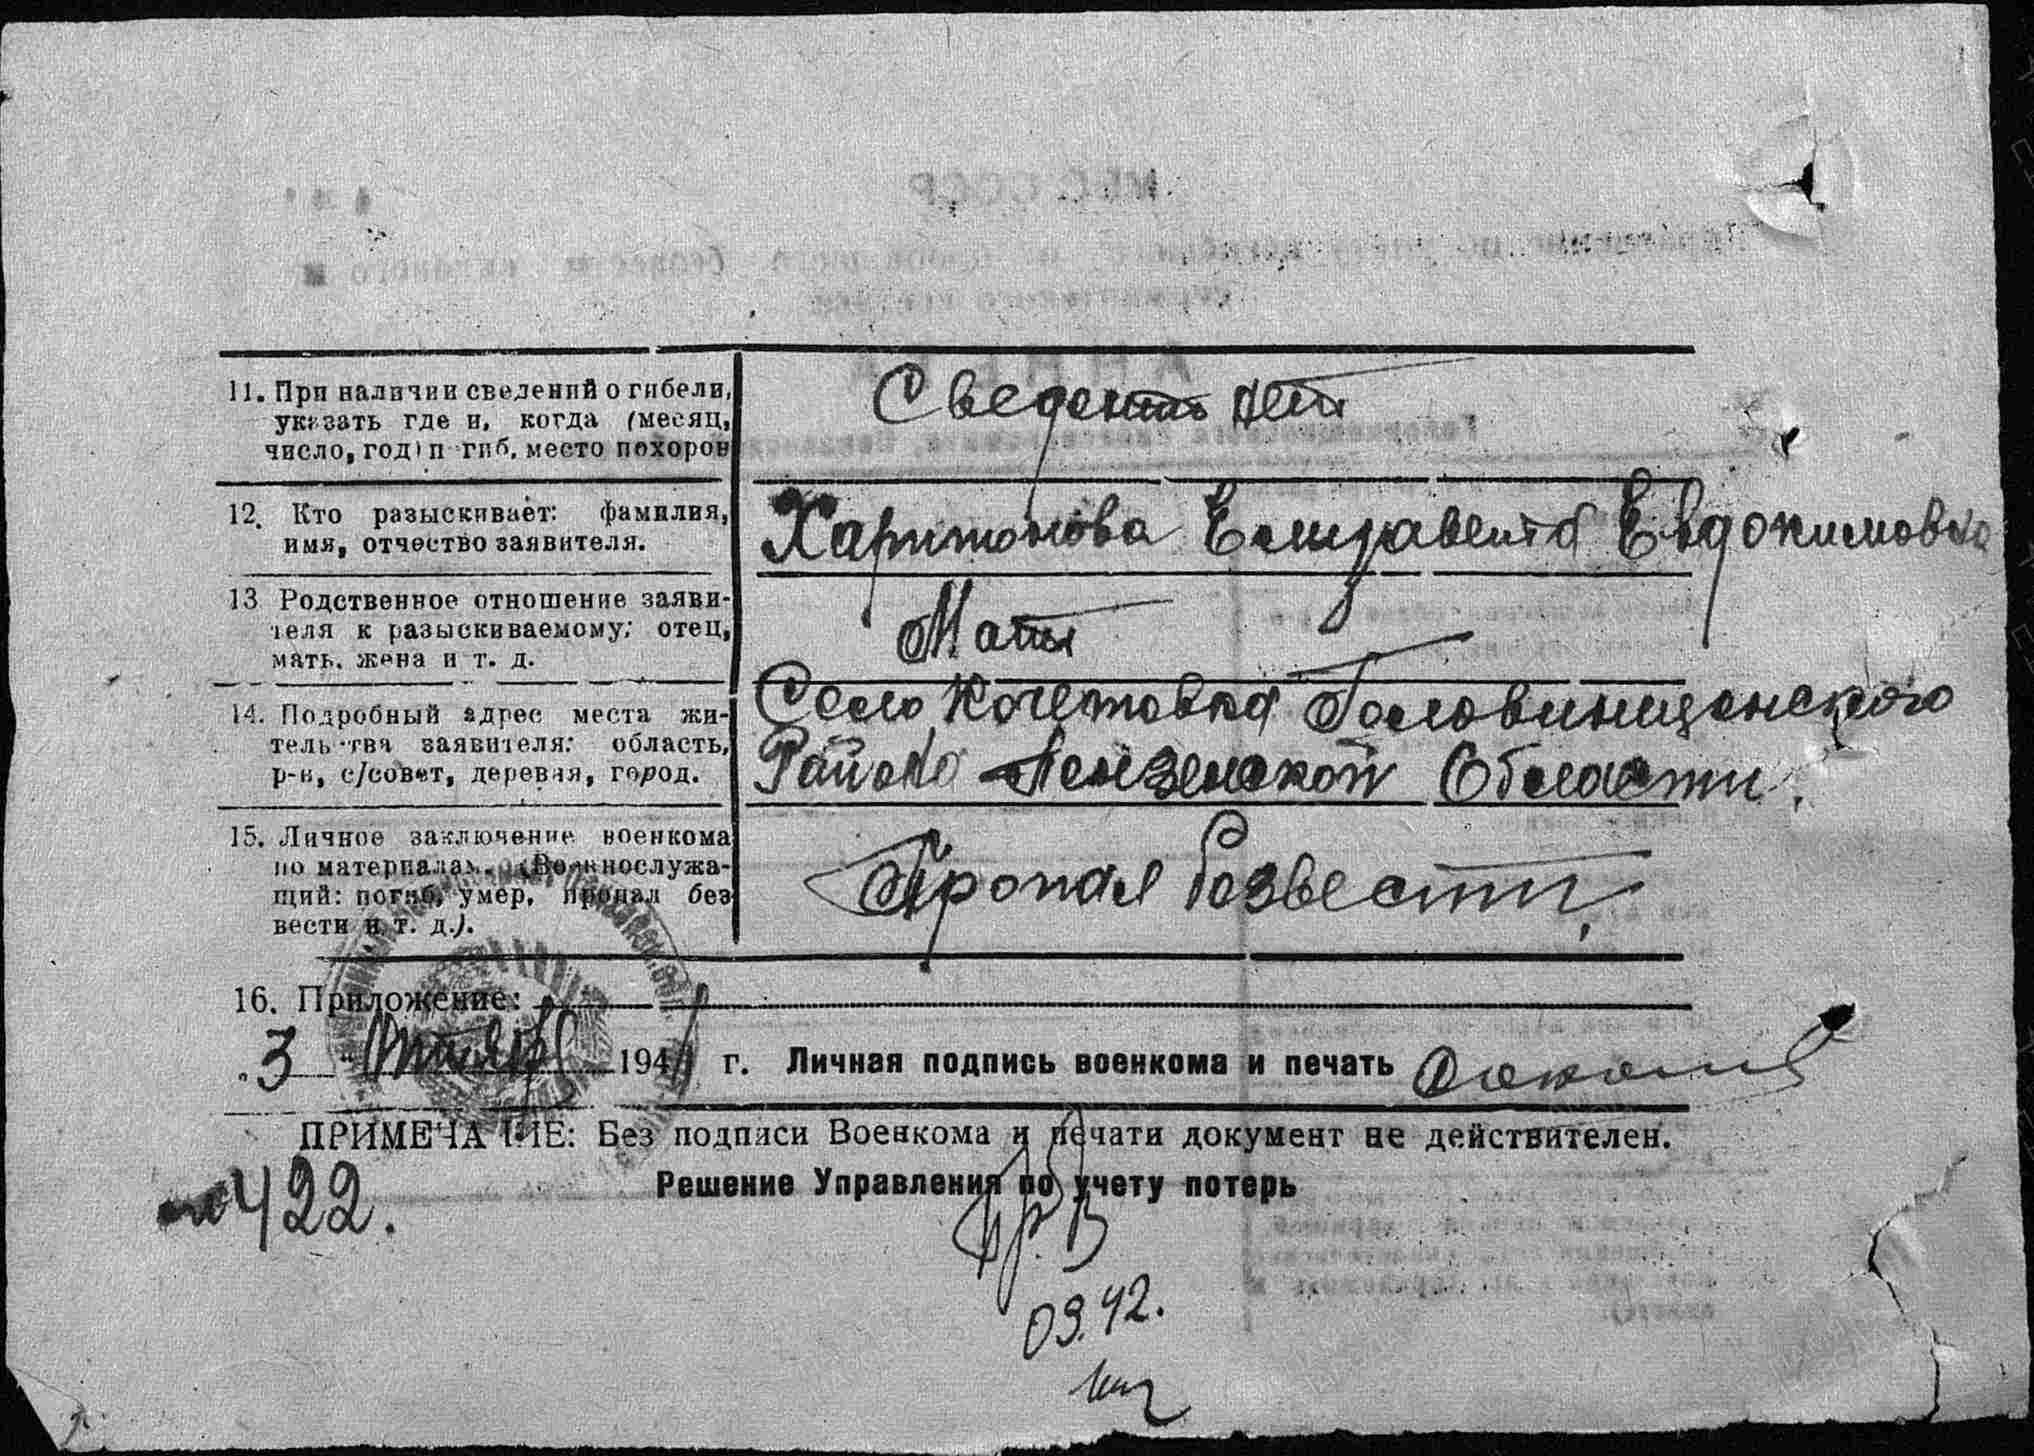 11. При наличии сведений о гибели,
указать где и, когда (месяц,
число, год) п гиб, место похорон
Сведений нет
12. Кто разыскивает: фамилия,
имя, отчество заявителя.
Харитонова Елизавета Евдокимовна
13 Родственное отношение заяви-
теля к разыскиваемому; отец,
мать, жена и т. д.
Мать
14. Подробный адрес места жи-
тельства заявителя: область,
р-н, с/совет, деревня, город.
Село Кочетовка Головинщенского
Района Пензенской Области.
15. Личное заключение военкома
по материалам. (Военнослужа-
щий: погиб, умер, пропал без
вести и т. д.).
Пропал безвести,
16. Приложение:
"3 " 194 г. Личная подпись военкома и печать
ПРИМЕЧА ИЕ: Без подписи Военкома и печати документ не действителен.
422.
Решение Управления по учету потерь
пр. В
09.42.